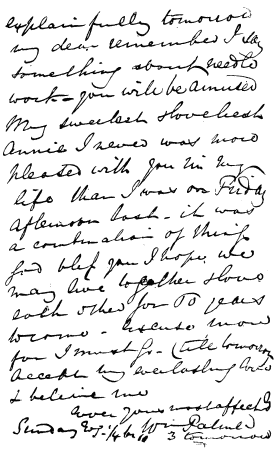 explain fully tomorrow
my dear - remember I say
something about needle
work - you will be amused
My sweetest loveliest
Annie I never was more
pleased with you in my
life than I was on Friday
afternoon last - it was
a combination of things
God bless you I hope we
may live together & love
each other for 60 years
to come - excuse more
for I must go - (till tomorrow)
accept my everlasting love
& believe me
ever yours most affectly
Sunday Evg - 1/4 to 10 Wm Palmer
3 tomorrow